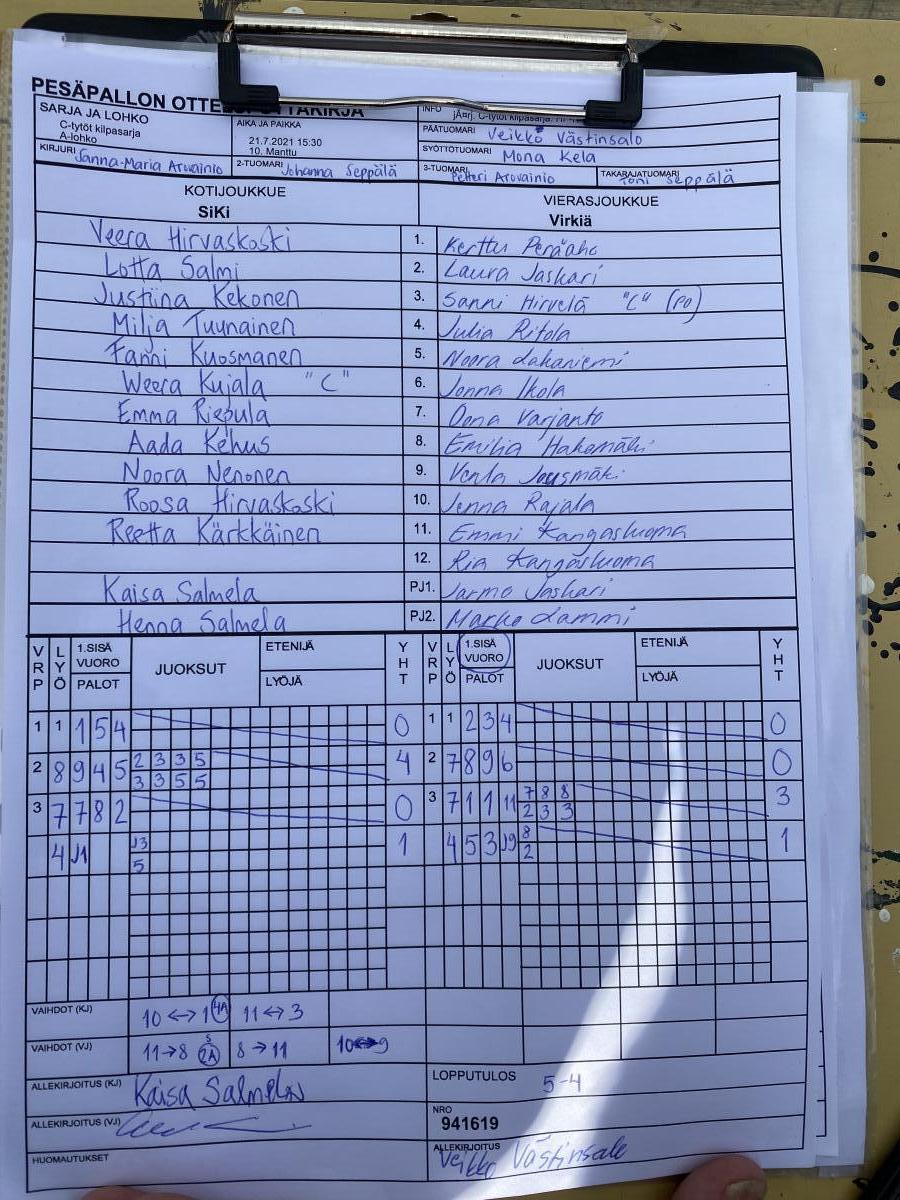 PESÄPALLON
SARJA JA LOHKO
C-tytöt kilpasarja
A-lohko
AIKA JA PAIKKA
21.7.2021 15:30
10. Manttu
INFO
C-tytöt kilpasarja
PÄÄTUOMARI Veikko Västinsalo
SYÖTTÖTUOMARI Mona Kela
KIRJURI Sanna-Maria Arovainio
2-TUOMARI Johanna Seppälä
3-TUOMARI Petteri Arovainio
TAKARAJATUOMARI Toni Seppälä
KOTIJOUKKUE
SiKi
VIERASJOUKKUE
Virkiä
Veera Hirvaskoski 1. Kerttu Peräaho
Lotta Salmi 2. Laura Jaskari
Justiina Kekonen 3. Sanni Hirvelä "C" (PO)
Milja Tuunainen 4. Julia Ritola
Fanni Kuosmanen 5. Noora Lakaniemi
Weera Kujala "C" 6. Jonna Ikola
Emma Riepula 7. Oona Varjanto
Aada Kehus 8. Emilia Hakomäki
Noora Nenonen 9. Venla Jousmäki
Roosa Hirvaskoski 10. Jenna Rajala
Reetta Kärkkäinen 11. Emmi Kangasluoma
12. Ria Kangasluoma
Kaisa Salmela PJ1. Jarmo Jaskari
Henna Salmela PJ2. Marko Lammi
VRP LYÖ 1.SISÄ VUORO PALOT JUOKSUT ETENIJÄ LYÖJÄ YHT VRP LYÖ 1.SISÄ VUORO PALOT JUOKSUT ETENIJÄ LYÖJÄ YHT
1 1 1 5 4 0 1 1 2 3 4 0
2 8 9 4 5 2 3 3 5 4 2 7 8 9 6 0
3 3 5 5
3 7 7 8 2 0 3 7 1 1 11 7 8 8 3
2 3 3
4 J1 J3 1 4 5 3 J9 8 1
5 2
VAIHDOT (KJ) 10 ↔ 1 4A 11 ↔ 3
VAIHDOT (VJ) 11→8 S 2A 8→11
ALLEKIRJOITUS (KJ) Kaisa Salmela
LOPPUTULOS 5-4
ALLEKIRJOITUS (VJ)
NRO
941619
HUOMAUTUKSET
ALLEKIRJOITUS
Veikko Västinsalo